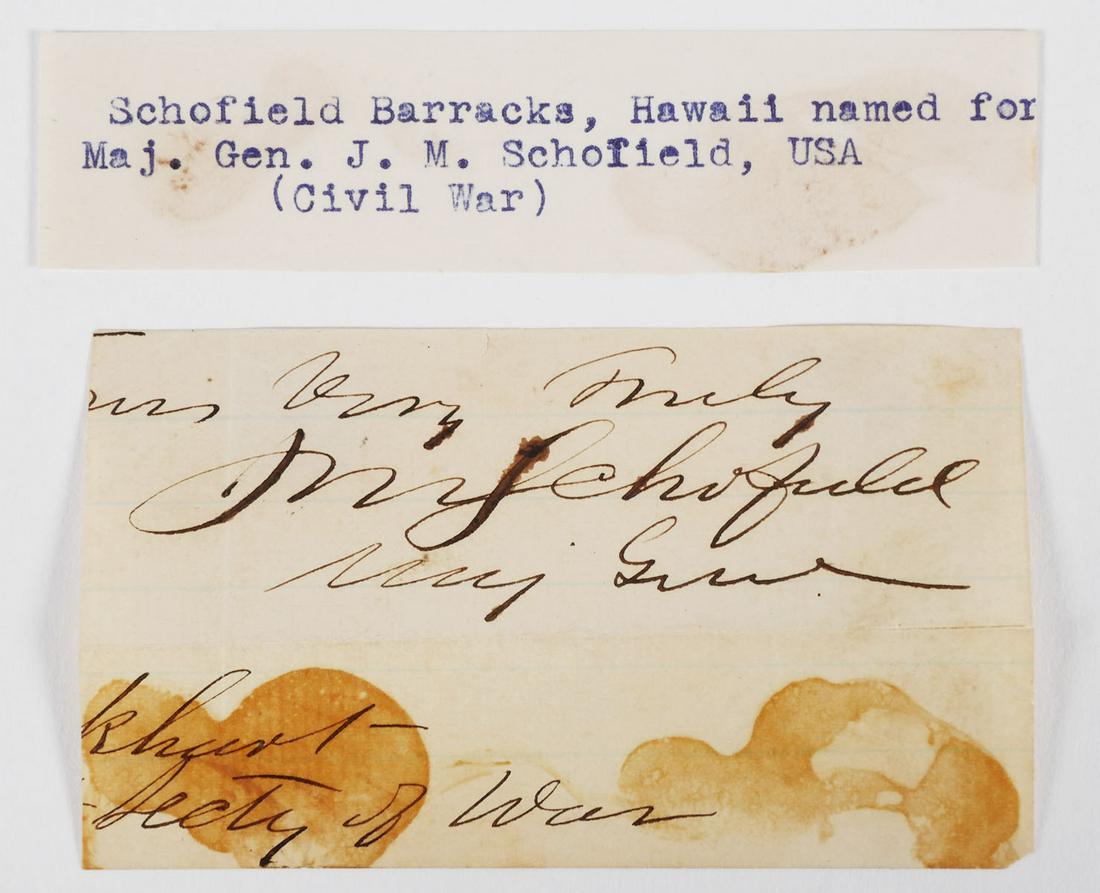 Schofield Barracks, Hawaii named for
Maj. Gen. J. M. Schofield, USA
(Civil War)
urs Very Truly
JM Schofield
Maj Genl
khart
Secty of War